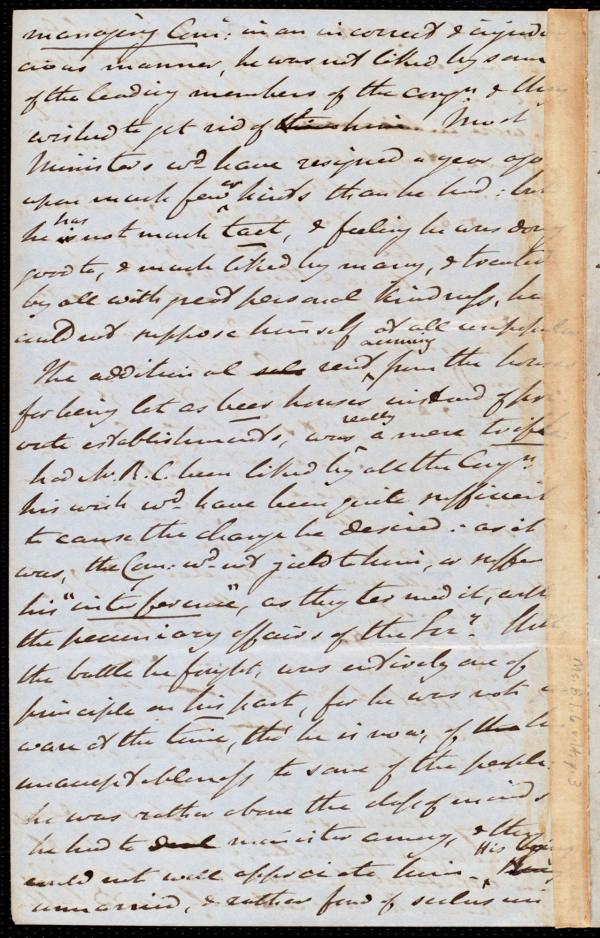 managing Com: in an incorrect & injudi-
cious manner, he was not liked by some
of the leading members of the congn. & they
wished to get rid of him. Most
Ministers wd. have resigned a year ago
upon much fewer hints than he had: but
he has not much tact, & feeling he was doing
good to, & much liked by many, & treated
by all with great personal kindness, he
could not suppose himself at all unpopular
The additional rent accruing from the houses
for being let as beer houses instead of pri-
vate establishments, was really a mere trifle
had Mr. R. C. been liked by all the Congn.
his wish wd. have been quite sufficient
to cause the change he desired: as it
was, the Com: wd. not yield to him, or suffer
his "interference", as they termed it, with
the pecuniary affairs of the Still
the battle he fought, was entirely one of
principle on his part, for he was not a-
ware at the time, tho' he is now, of the
unacceptableness to some of the people.
he was rather above the class of minds
he had to minister among, & they
could not well appreciate him. His being
unmarried, & rather fond of seclusion